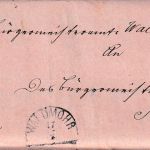 Bürgermeisteramt Wal
An
Das Bürgermeist
WALDMOHR